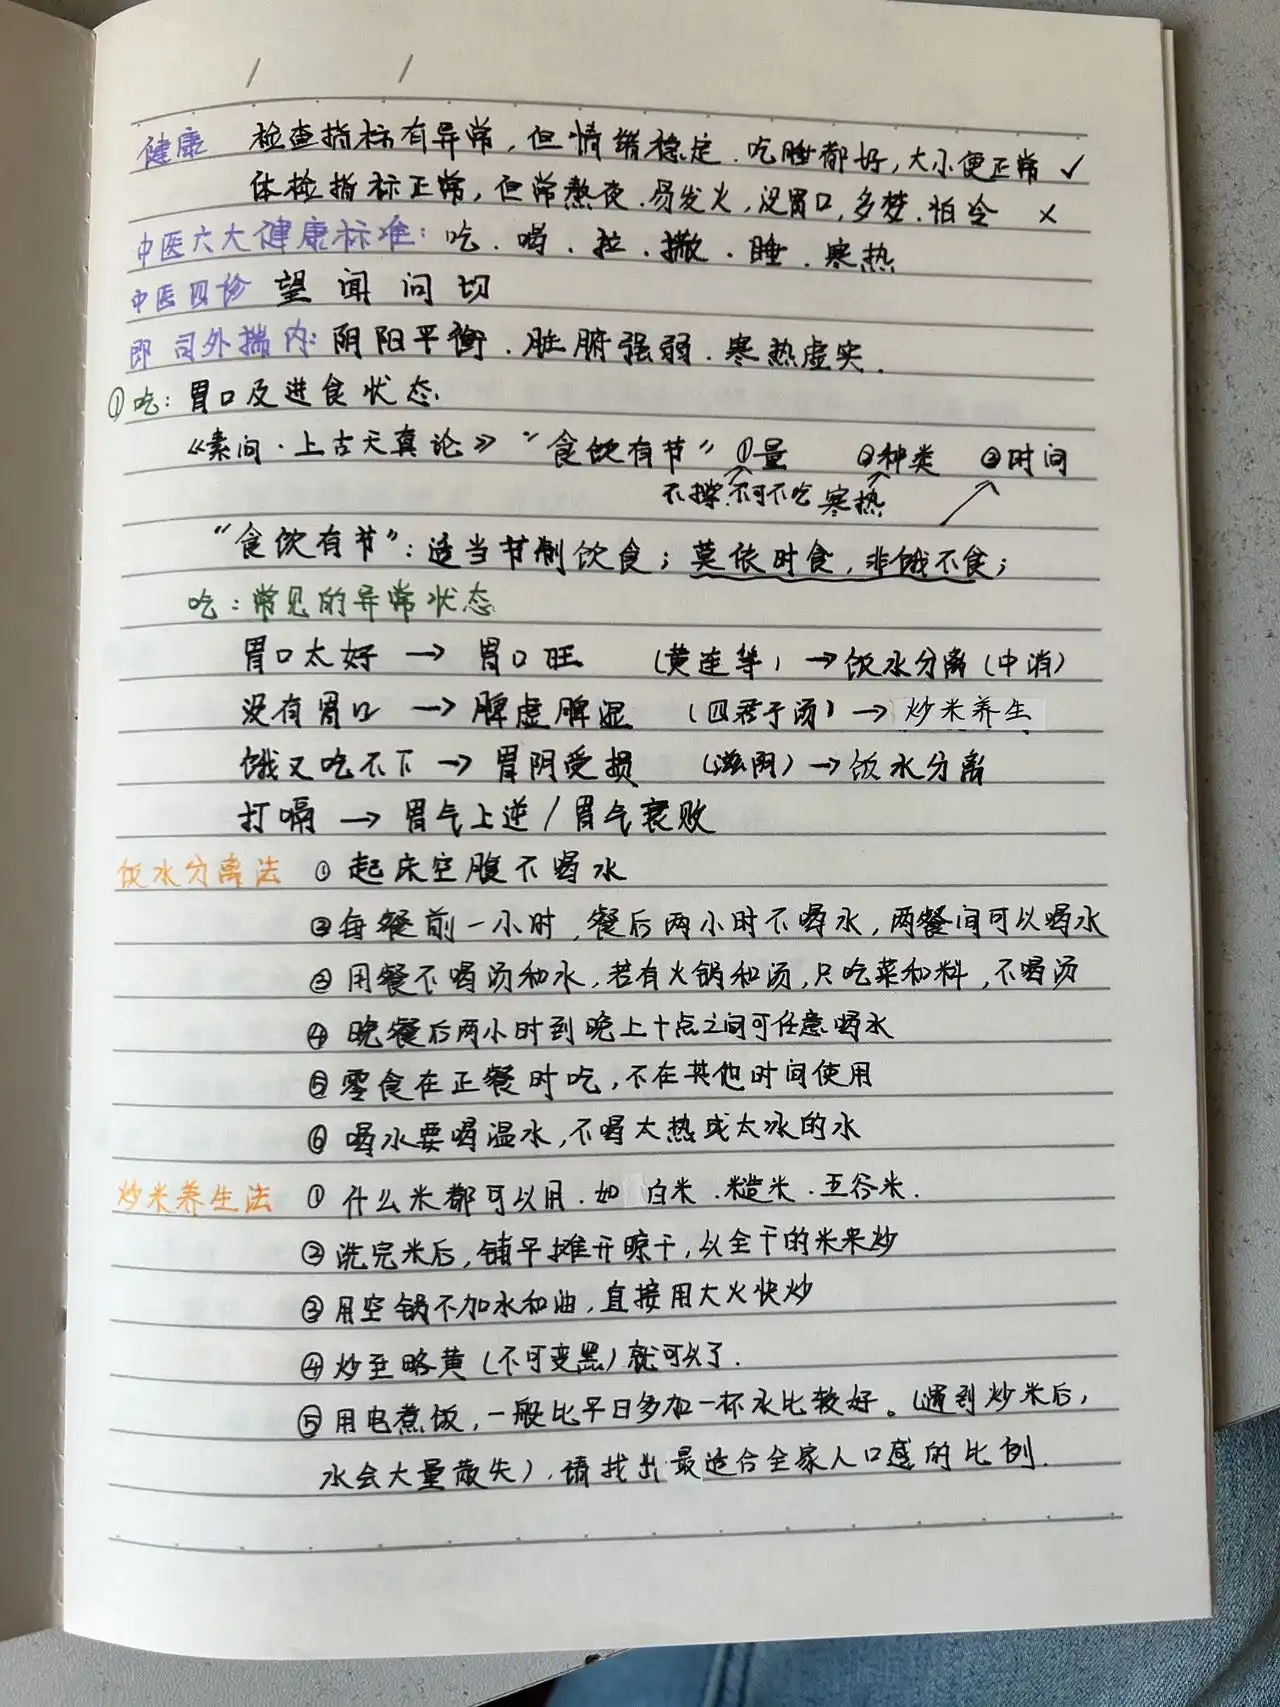 健康 检查指标有异常，但情绪稳定．吃睡都好，大小便正常 ✓
体检指标正常，但常熬夜．易发火，没胃口，多梦．怕冷 ×
中医六大健康标准：吃．喝．拉．撒．睡．寒热
中医四诊 望 闻 问 切
即 司外揣内：阴阳平衡．脏腑强弱．寒热虚实．
①吃：胃口及进食状态．
《素问·上古天真论》“食饮有节”①量 ②种类 ③时间
不撑．不可不吃 寒热
“食饮有节”：适当节制饮食；莫依时食，非饿不食；
吃：常见的异常状态
胃口太好 → 胃口旺 （黄连等）→饮水分离（中消）
没有胃口 → 脾虚脾湿 （四君子汤）→ 炒米养生
饿又吃不下 → 胃阴受损 （滋阴）→饮水分离
打嗝 → 胃气上逆/胃气衰败
饮水分离法 ①起床空腹不喝水
②每餐前一小时，餐后两小时不喝水，两餐间可以喝水
③用餐不喝汤和水，若有火锅和汤，只吃菜和料，不喝汤
④晚餐后两小时到晚上十点之间可任意喝水
⑤零食在正餐时吃，不在其他时间使用
⑥喝水要喝温水，不喝太热或太冰的水
炒米养生法 ①什么米都可以用．如 白米．糙米．五谷米．
②洗完米后，铺平摊开晾干，以全干的米来炒
③用空锅不加水和油，直接用大火快炒
④炒至略黄（不可变黑）就可以了．
⑤用电煮饭，一般比平日多加一杯水比较好。（遇到炒米后，
水会大量散失），请找出最适合全家人口感的比例．